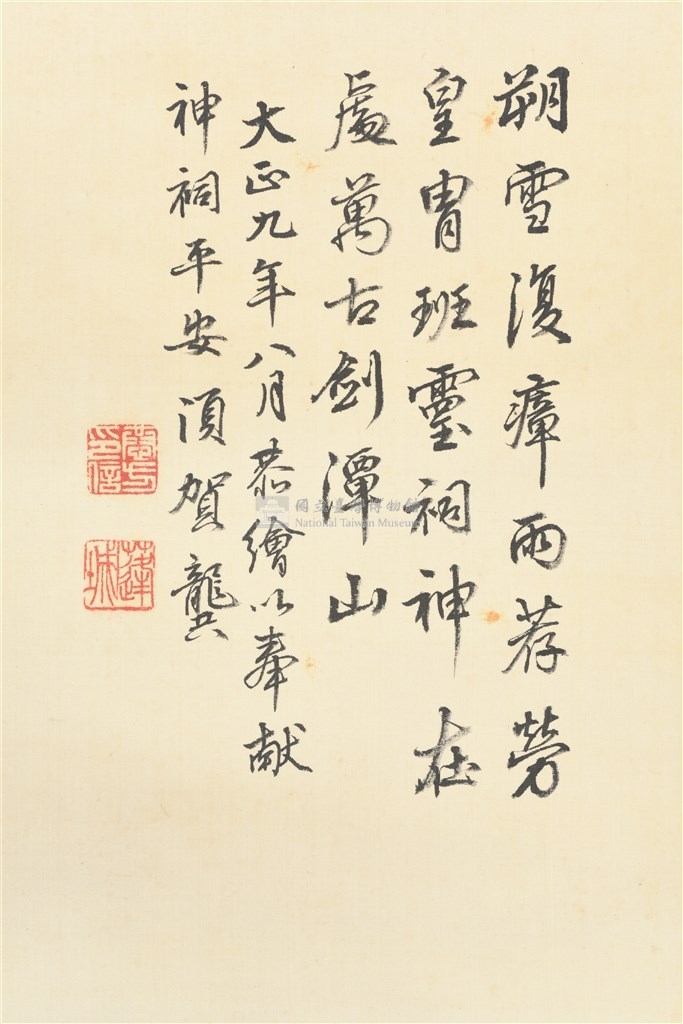 朔雪復瘴雨荐勞
皇胄班靈祠神在
處萬古劍潭山
大正九年八月恭繪以奉献
神祠平安須賀龔
國立臺灣博物館
National Taiwan Museum